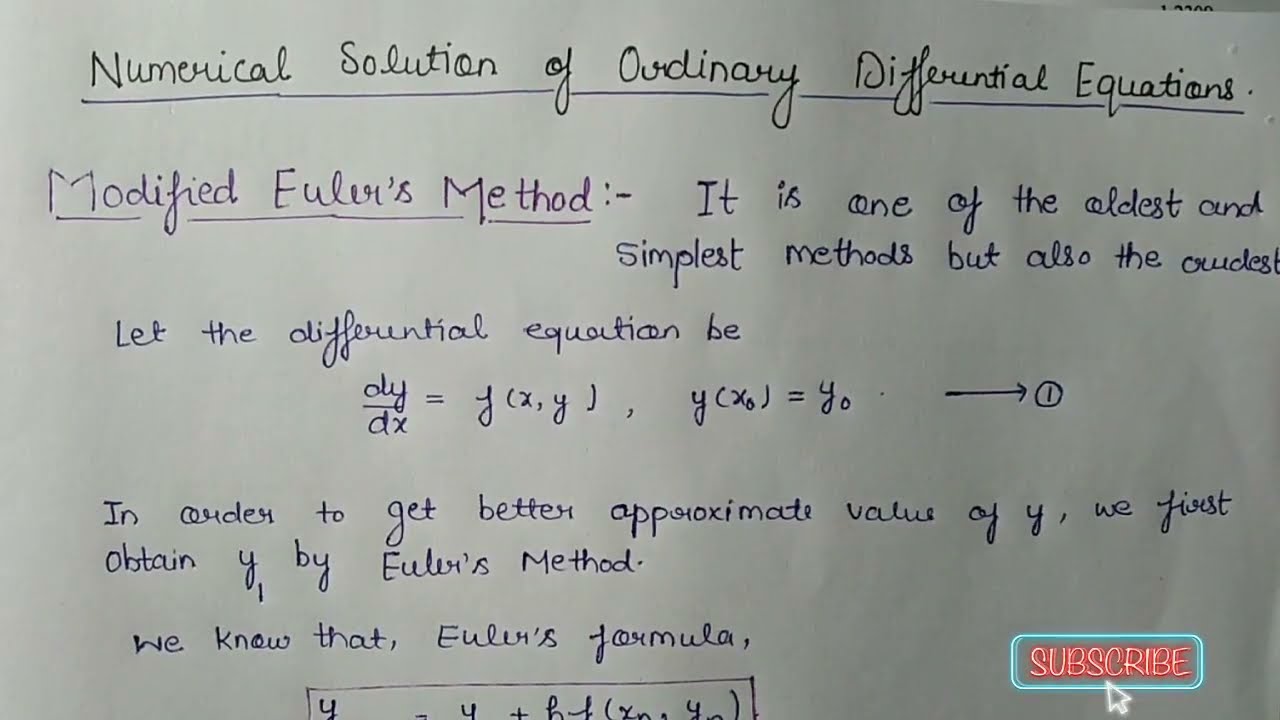 Numerical Solution of Ordinary Differential Equations.
Modified Euler's Method :- It is one of the oldest and
simplest methods but also the crudest
Let the differential equation be
dy/dx = f(x, y), y(x₀) = y₀. ⟶ ①
In order to get better approximate value of y, we first
obtain y₁ by Euler's Method.
We know that, Euler's formula,
y = y + hf(xₙ, yₙ)
SUBSCRIBE